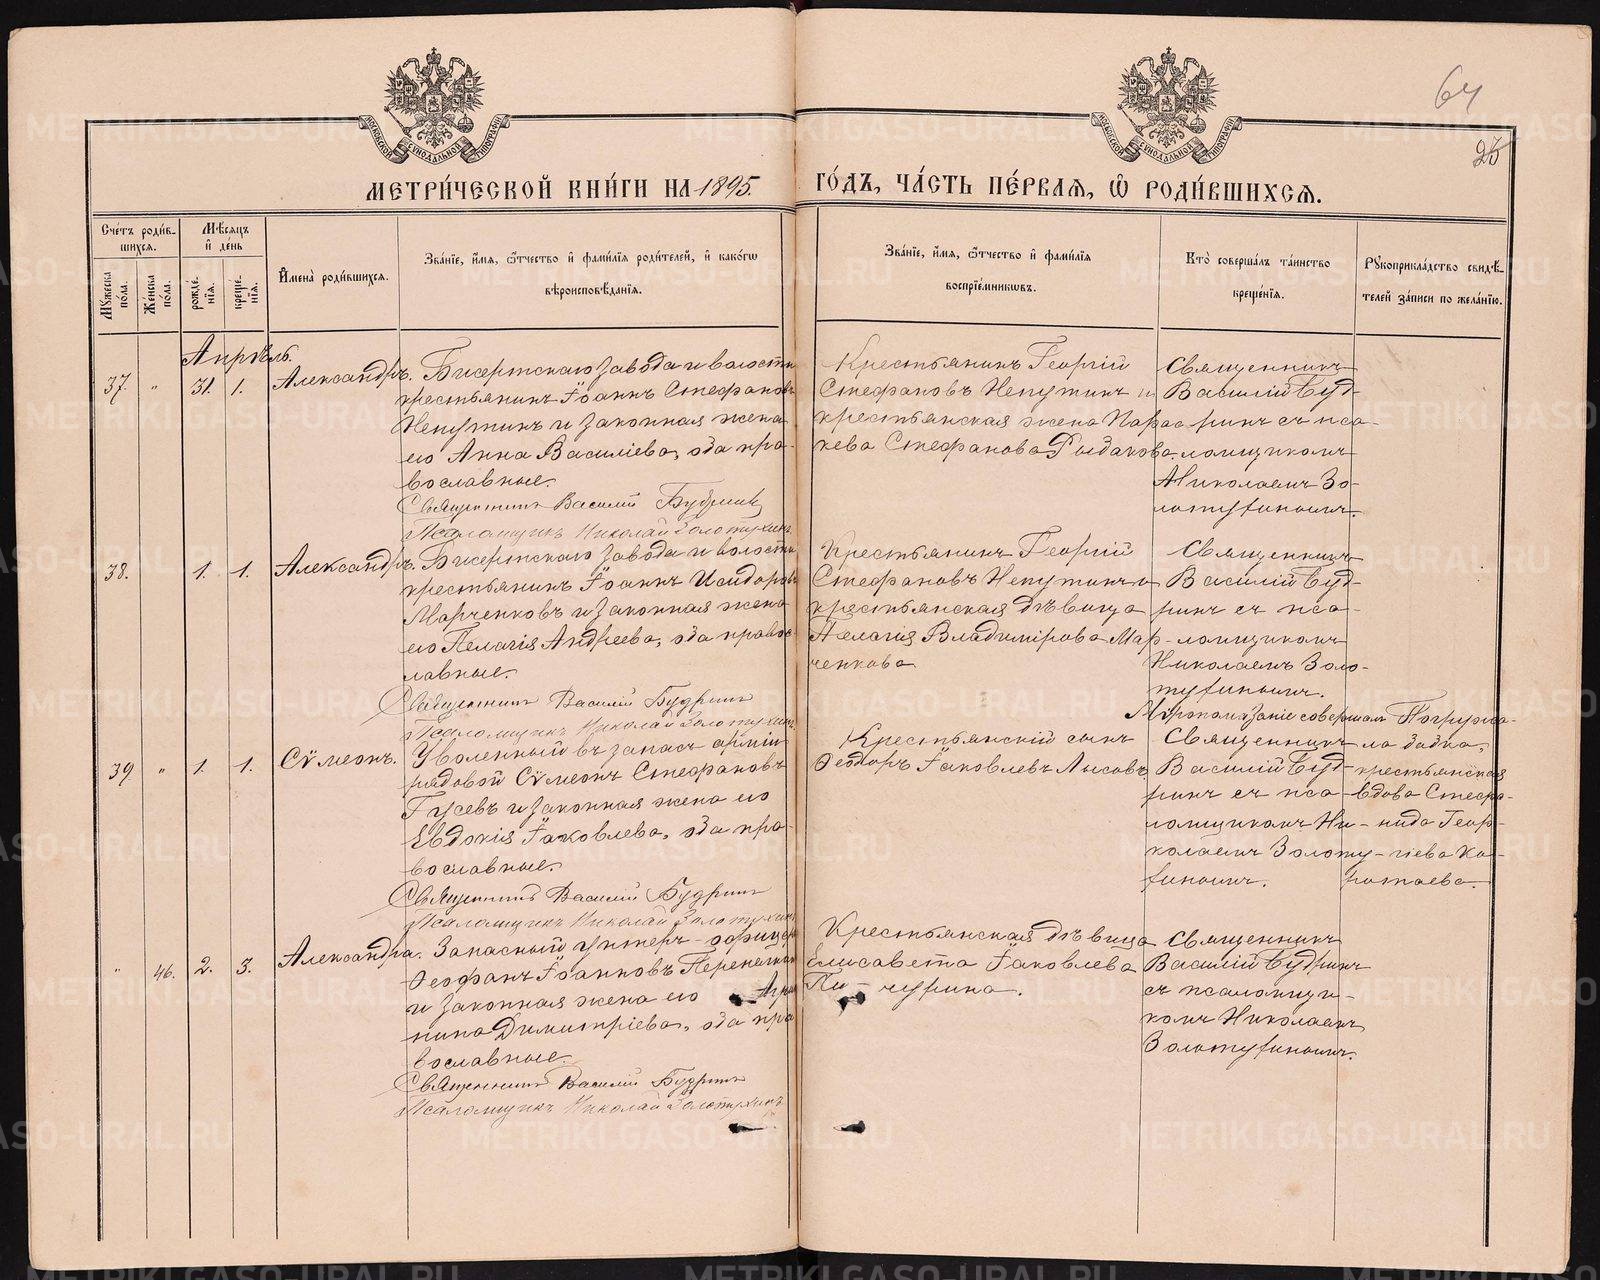 64
25
МОСКОВСКОЙ СУНОДАЛЬНОЙ ТИПОГРАФІИ
МОСКОВСКОЙ СУНОДАЛЬНОЙ ТИПОГРАФІИ
МЕТРИ́ЧЕСКОЙ КНИ́ГИ НА 1895.
ГО́ДЪ, ЧА́СТЬ ПЕ́РВАѦ, Ѡ҆ РОДИ́ВШИХСѦ.
Сче́тъ роди́в-
шихся.
Мѣ́сяцъ
и҆ де́нь
Му́жеска
по́ла.
Же́нска
по́ла.
рожде́-
нїѧ.
креще́-
нїѧ.
И҆мена̀ роди́вшихсѧ.
Зва́нїе, и҆́мѧ, ѻ҆́тчество и҆ фами́лїѧ роди́телей, и҆ како́гѡ
вѣроисповѣ́данїѧ.
Зва́нїе, и҆́мѧ, ѻ҆́тчество и҆ фами́лїѧ
воспрїе́мникѡвъ.
Кто̀ соверша́лъ та́инство
креще́нїѧ.
Рꙋкоприкла́дство свидѣ́-
телей за́писи по жела́нїю.
Апрѣль.
37. „ 31. 1. Александръ.
Бисертскаго завода и волости
крестьянинъ Іоаннъ Стефановъ
Непутинъ и законная жена
его Анна Василіева, оба пра-
вославные.
Священникъ Василій Будринъ
Псаломщикъ Николай Золотухинъ
Крестьянинъ Георгій
Стефановъ Непутинъ и
крестьянская жена Парас-
кева Стефанова Рыбакова.
Священникъ
Василій Буд-
ринъ съ пса-
ломщикомъ
Николаемъ Зо-
лотухинымъ.
38. 1. 1. Александръ.
Бисертскаго завода и волости
крестьянинъ Іоаннъ Исидоровъ
Марченковъ и законная жена
его Пелагія Андреева, оба правос-
лавные.
Священникъ Василій Будринъ
Псаломщикъ Николай Золотухинъ
Крестьянинъ Георгій
Стефановъ Непутинъ и
крестьянская дѣвица
Пелагія Владимірова Мар-
ченкова
Священникъ
Василій Буд-
ринъ съ пса-
ломщикомъ
Николаемъ Золо-
тухинымъ.
39 „ 1. 1. Сѵмеонъ.
Уволенный въ запасъ арміи
рядовой Сѵмеонъ Стефановъ
Гусевъ и законная жена его
Евдокія Іаковлева, оба пра-
вославные.
Священникъ Василій Будринъ
Псаломщикъ Николай Золотухинъ
Крестьянскій сынъ
Ѳеодоръ Іаковлевъ Лысовъ
Мѵропомазаніе совершалъ
Священникъ
Василій Буд-
ринъ съ пса-
ломщикомъ Ни-
колаемъ Золоту-
хинымъ.
Погружа-
ла бабка,
крестьянская
вдова Стефа-
нида Геор-
гіева Ка-
ратаева.
„ 46. 2. 3. Александра.
Запасный унтеръ-офицеръ
Ѳеофанъ Іоанновъ
и законная жена его Агрип-
пина Димитріева, оба пра-
вославные.
Священникъ Василій Будринъ
Псаломщикъ Николай Золотухинъ
Крестьянская дѣвица
Елисавета Іаковлева
Пи-чурина.
Священникъ
Василій Будринъ
съ псаломщи-
комъ Николаемъ
Золотухинымъ.
METRIKI.GASO-URAL.RU